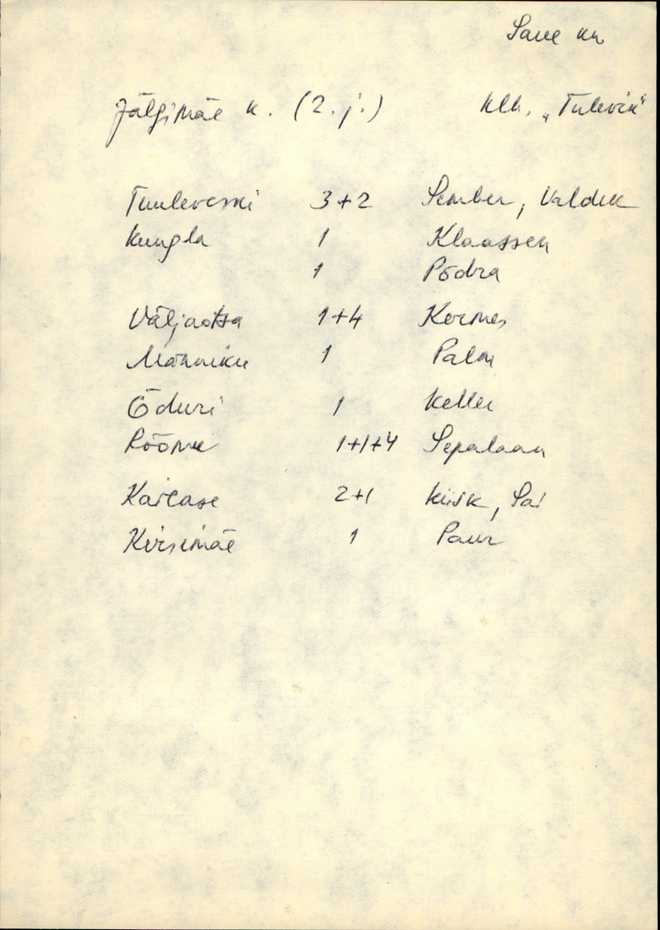 Saue kn
Jälgimäe k. (2. j.) klh. „Tulevik"
Tuuleveski 3+2 Sember, Valdek
Kungla 1 Klaassen
1 Põdra
Väljaotsa 1+4 Kermes
Männiku 1 Palm
Õduri 1 Keller
Rõõmu 1+1+4 Sepalaan
Karease 2+1 Kiisk, Sai
Kirsimäe 1 Paur